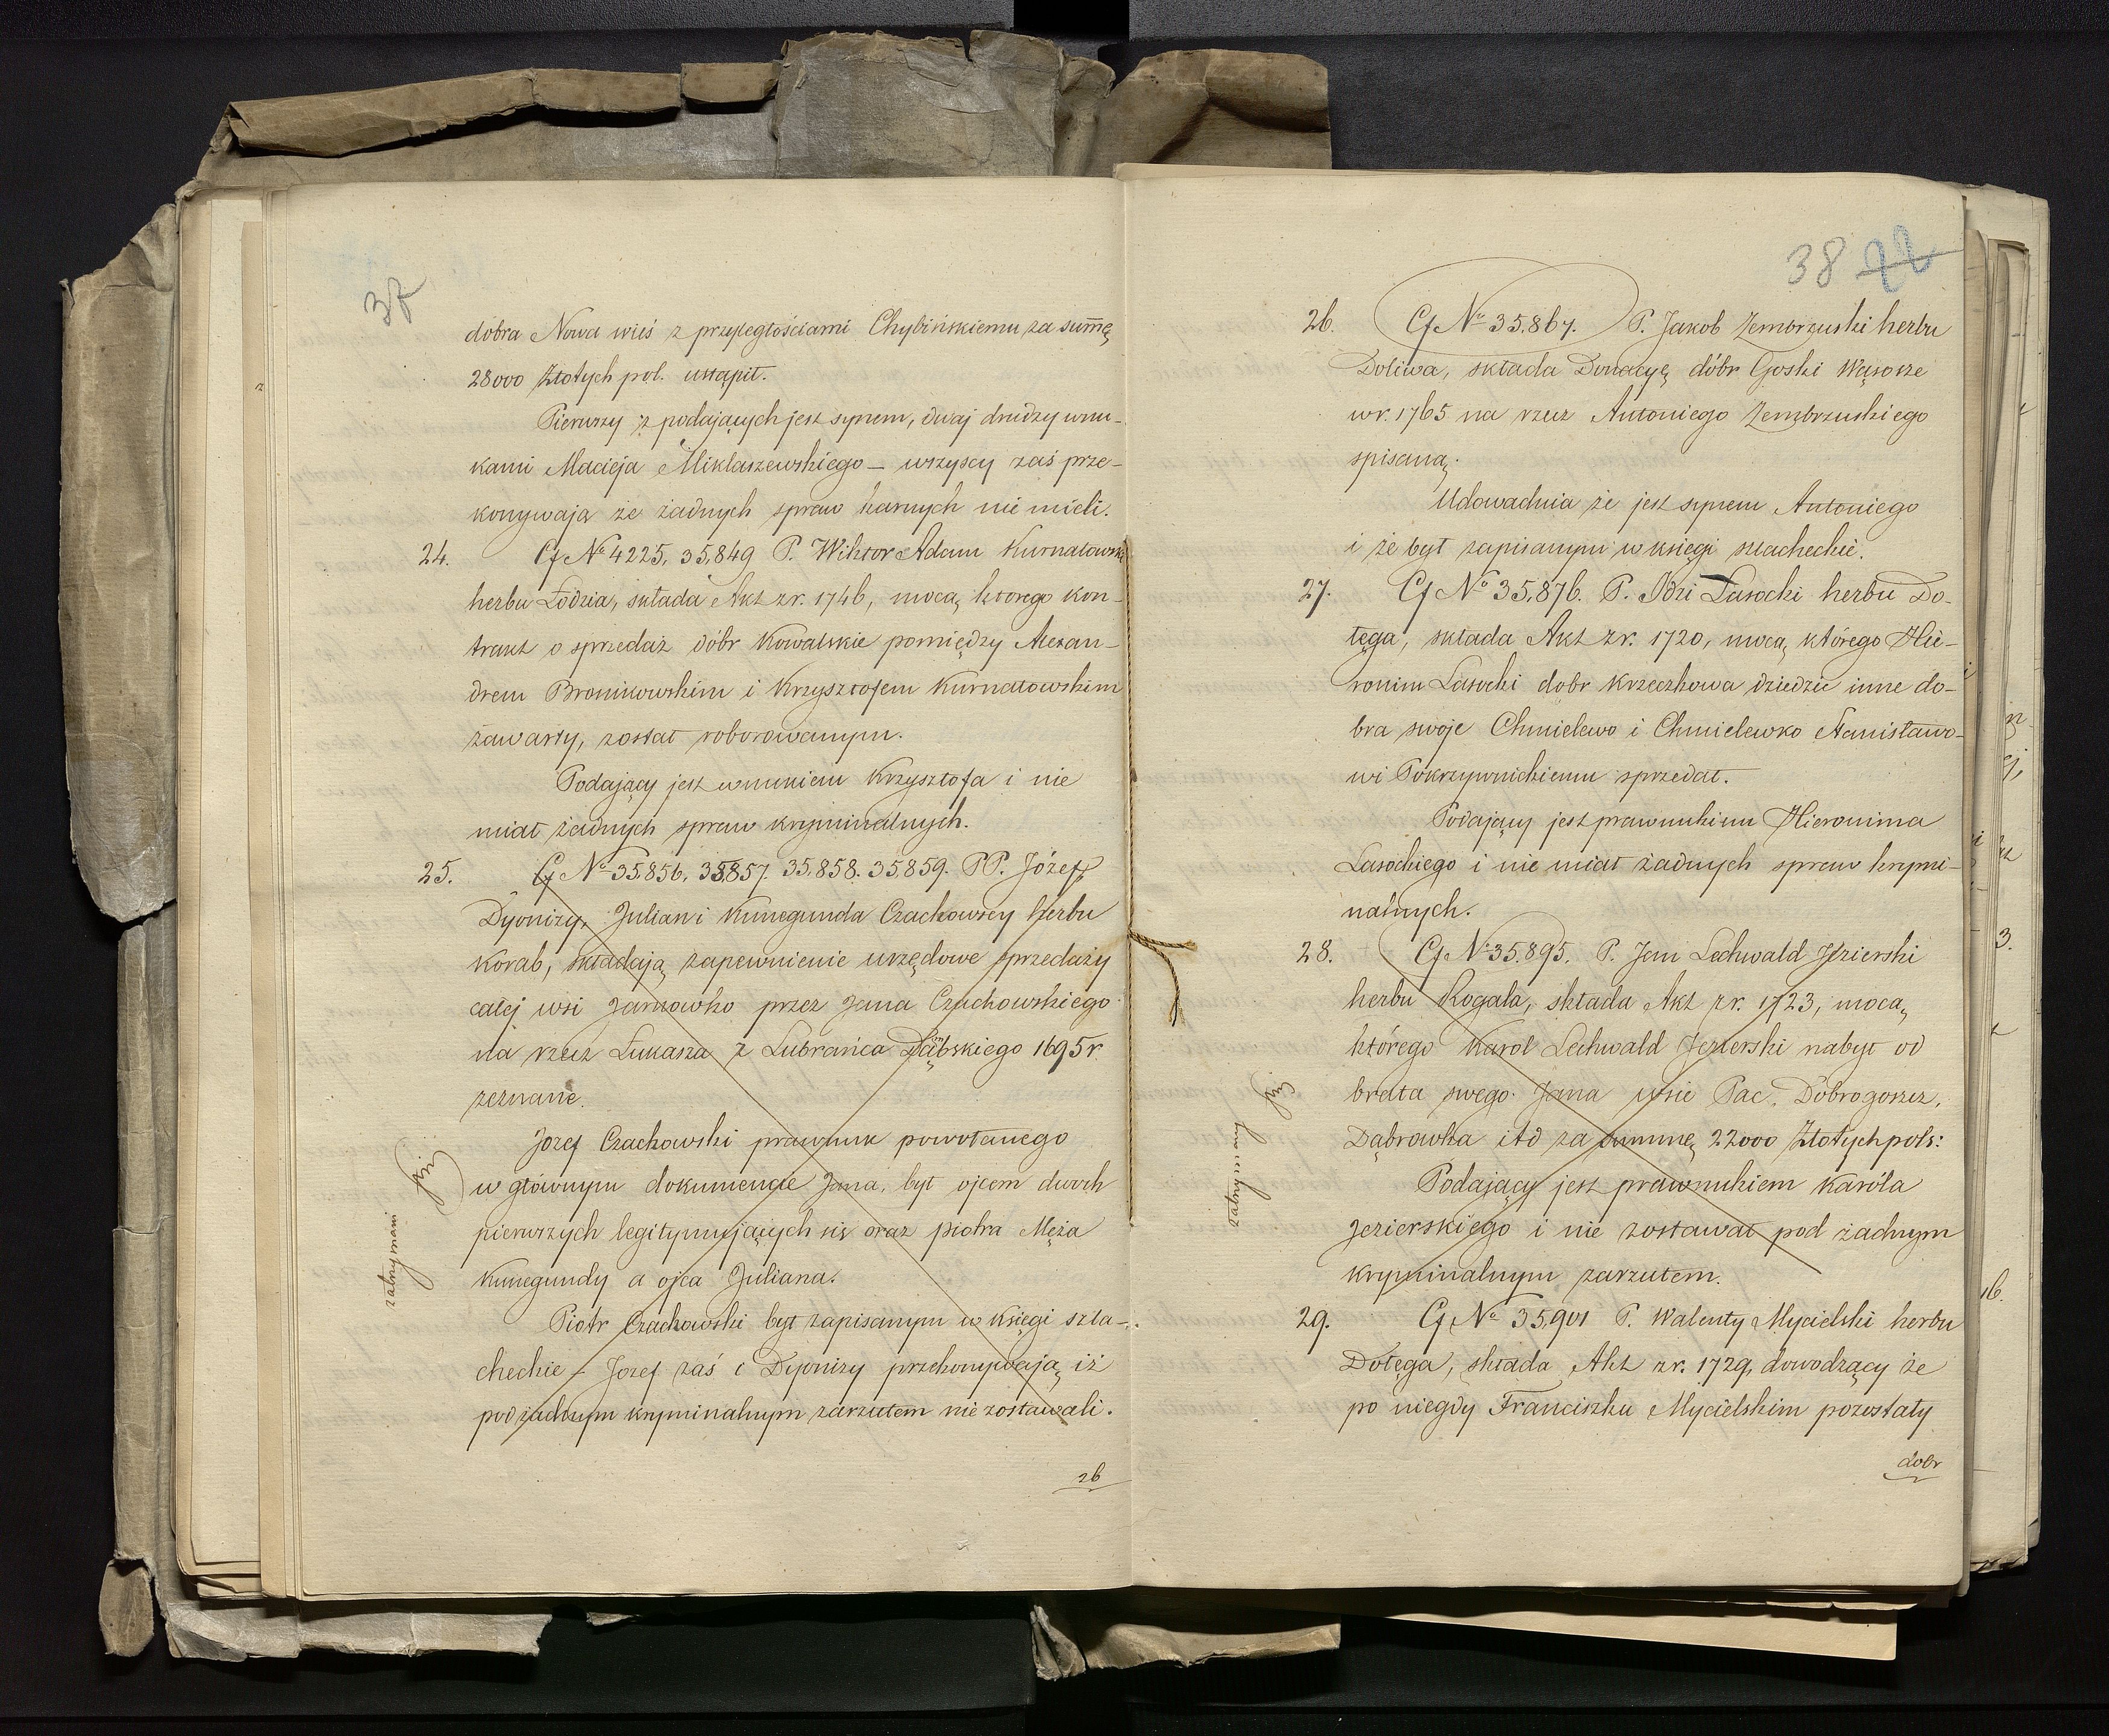 37
dobra Nowa wieś z przyległościami Chybińskiemu za summę
28000 Złotych pol. ustąpił.
Pierwszy z podających jest synem, dwaj drudzy wnu-
kami Macieja Miklaszewskiego – wszyscy zaś prze-
konywają że żadnych spraw karnych nie mieli.
24. Cf № 4225, 35,849 P. Wiktor Adam Kurnatowski
herbu Łodzia, składa Akt z r. 1746, mocą ktorego kon-
trakt o sprzedaż dóbr Kowalskie pomiędzy Alexan-
drem Bronikowskim i Krzysztofem Kurnatowskim
zawarty, został roborowanym.
Podający jest wnukiem Krzysztofa i nie
miał żadnych spraw kryminalnych.
25. Cf № 35.856, 35857. 35.858. 35.859. PP. Józef,
Dyonizy, Julian i Kunegunda Czachowscy herbu
Korab, składają zapewnienie urzędowe sprzedaży
całej wsi Jarnowko przez Jana Czachowskiego
na rzecz Łukasza z Lubrańca Dąbskiego 1695 r.
zeznane.
Jozef Czachowski prawnuk powołanego
w głównym dokumencie Jana, był ojcem dwoch
pierwszych legitymujących się oraz piotra Męża
Kunegundy a ojca Juliana.
zatrzymani
Piotr Czachowski był zapisanym w Księgi szla-
checkie – Jozef zaś i Dyonizy przekonywają iż
pod żadnym kryminalnym zarzutem nie zostawali.
26
38 22
26. Cf № 35.867. P. Jakob Zembrzuski herbu
Doliwa, składa Donacyę dóbr Goski Wąsosze
w r. 1765 na rzecz Antoniego Zembrzuskiego
spisaną.
Udowadnia że jest synem Antoniego
i że był zapisanym w księgi szlacheckie.
27. Cf № 35.876. P. Idzi Lasocki herbu Do-
łęga, składa Akt z r. 1720, mocą którego Hie-
ronim Lasocki dobr Krzeczkowa dziedzic inne do-
bra swoje Chmielewo i Chmielewko Stanisławo-
wi Pokrzywnickiemu sprzedał.
Podający jest prawnukiem Hieronima
Lasockiego i nie miał żadnych spraw krymi-
nalnych.
28. Cf № 35.895. P. Jan Lechwald Jezierski
herbu Rogala, składa Akt z r. 1723, mocą
którego Karol Lechwald Jezierski nabył od
brata swego Jana wsie Pac. Dobrogoszcz,
Dąbrowka itd za summę 22000 Złotych pols:
zatrzymany
Podający jest prawnukiem Karóla
Jezierskiego i nie zostawał pod żadnym
kryminalnym zarzutem.
29. Cf № 35,901 P. Walenty Mycielski herbu
Dołęga, składa Akt z r. 1729, dowodzący że
po niegdy Franciszku Mycielskim pozostały
dobr